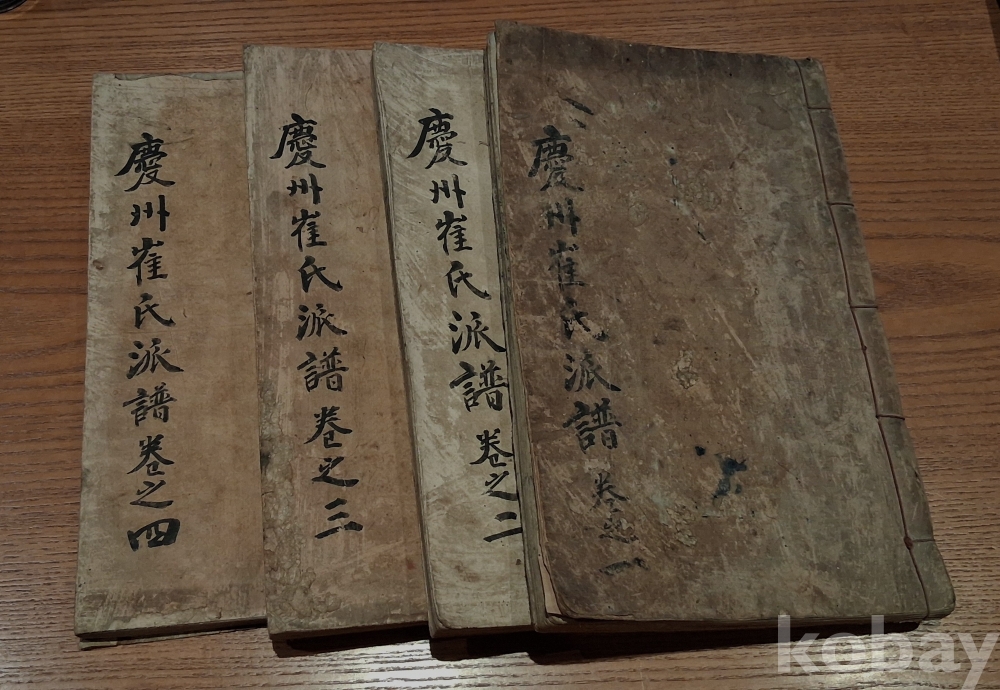 慶州崔氏派譜 卷之四
慶州崔氏派譜 卷之三
慶州崔氏派譜 卷之二
慶州崔氏派譜 卷之一
kobay